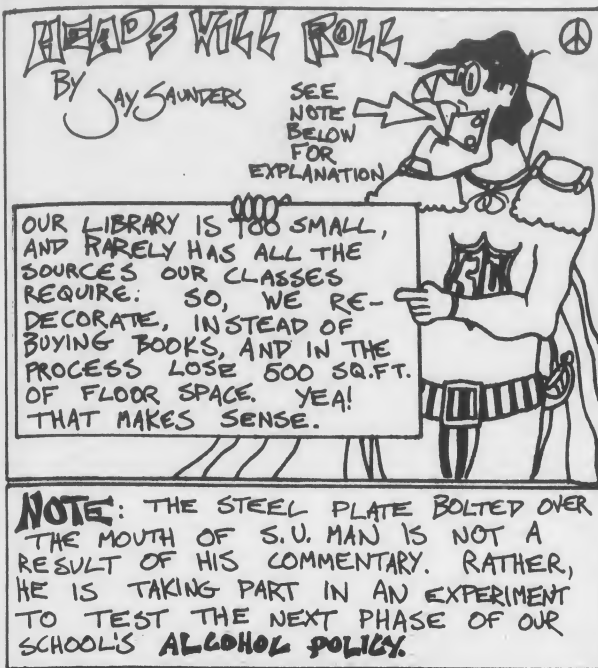 HEADS WILL ROLL
BY JAY SAUNDERS
SEE
NOTE
BELOW
FOR
EXPLANATION
OUR LIBRARY IS TOO SMALL,
AND RARELY HAS ALL THE
SOURCES OUR CLASSES
REQUIRE: SO, WE RE-
DECORATE, INSTEAD OF
BUYING BOOKS, AND IN THE
PROCESS LOSE 500 SQ.FT.
OF FLOOR SPACE. YEA!
THAT MAKES SENSE.
NOTE: THE STEEL PLATE BOLTED OVER
THE MOUTH OF S.U. MAN IS NOT A
RESULT OF HIS COMMENTARY. RATHER,
HE IS TAKING PART IN AN EXPERIMENT
TO TEST THE NEXT PHASE OF OUR
SCHOOL'S ALCOHOL POLICY.